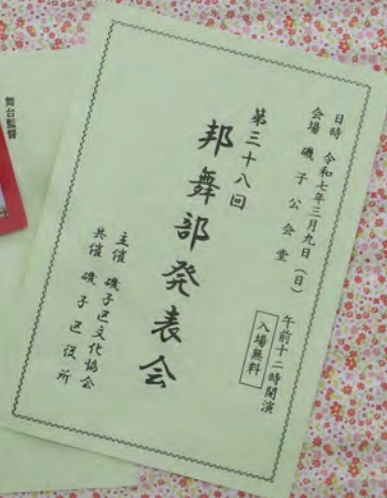 日時 令和七年三月九日(日) 午前十二時開演
会場 磯子公会堂
入場無料
第三十八回
邦舞部発表会
主催 磯子区文化協会
共催 磯子区役所
舞台監督